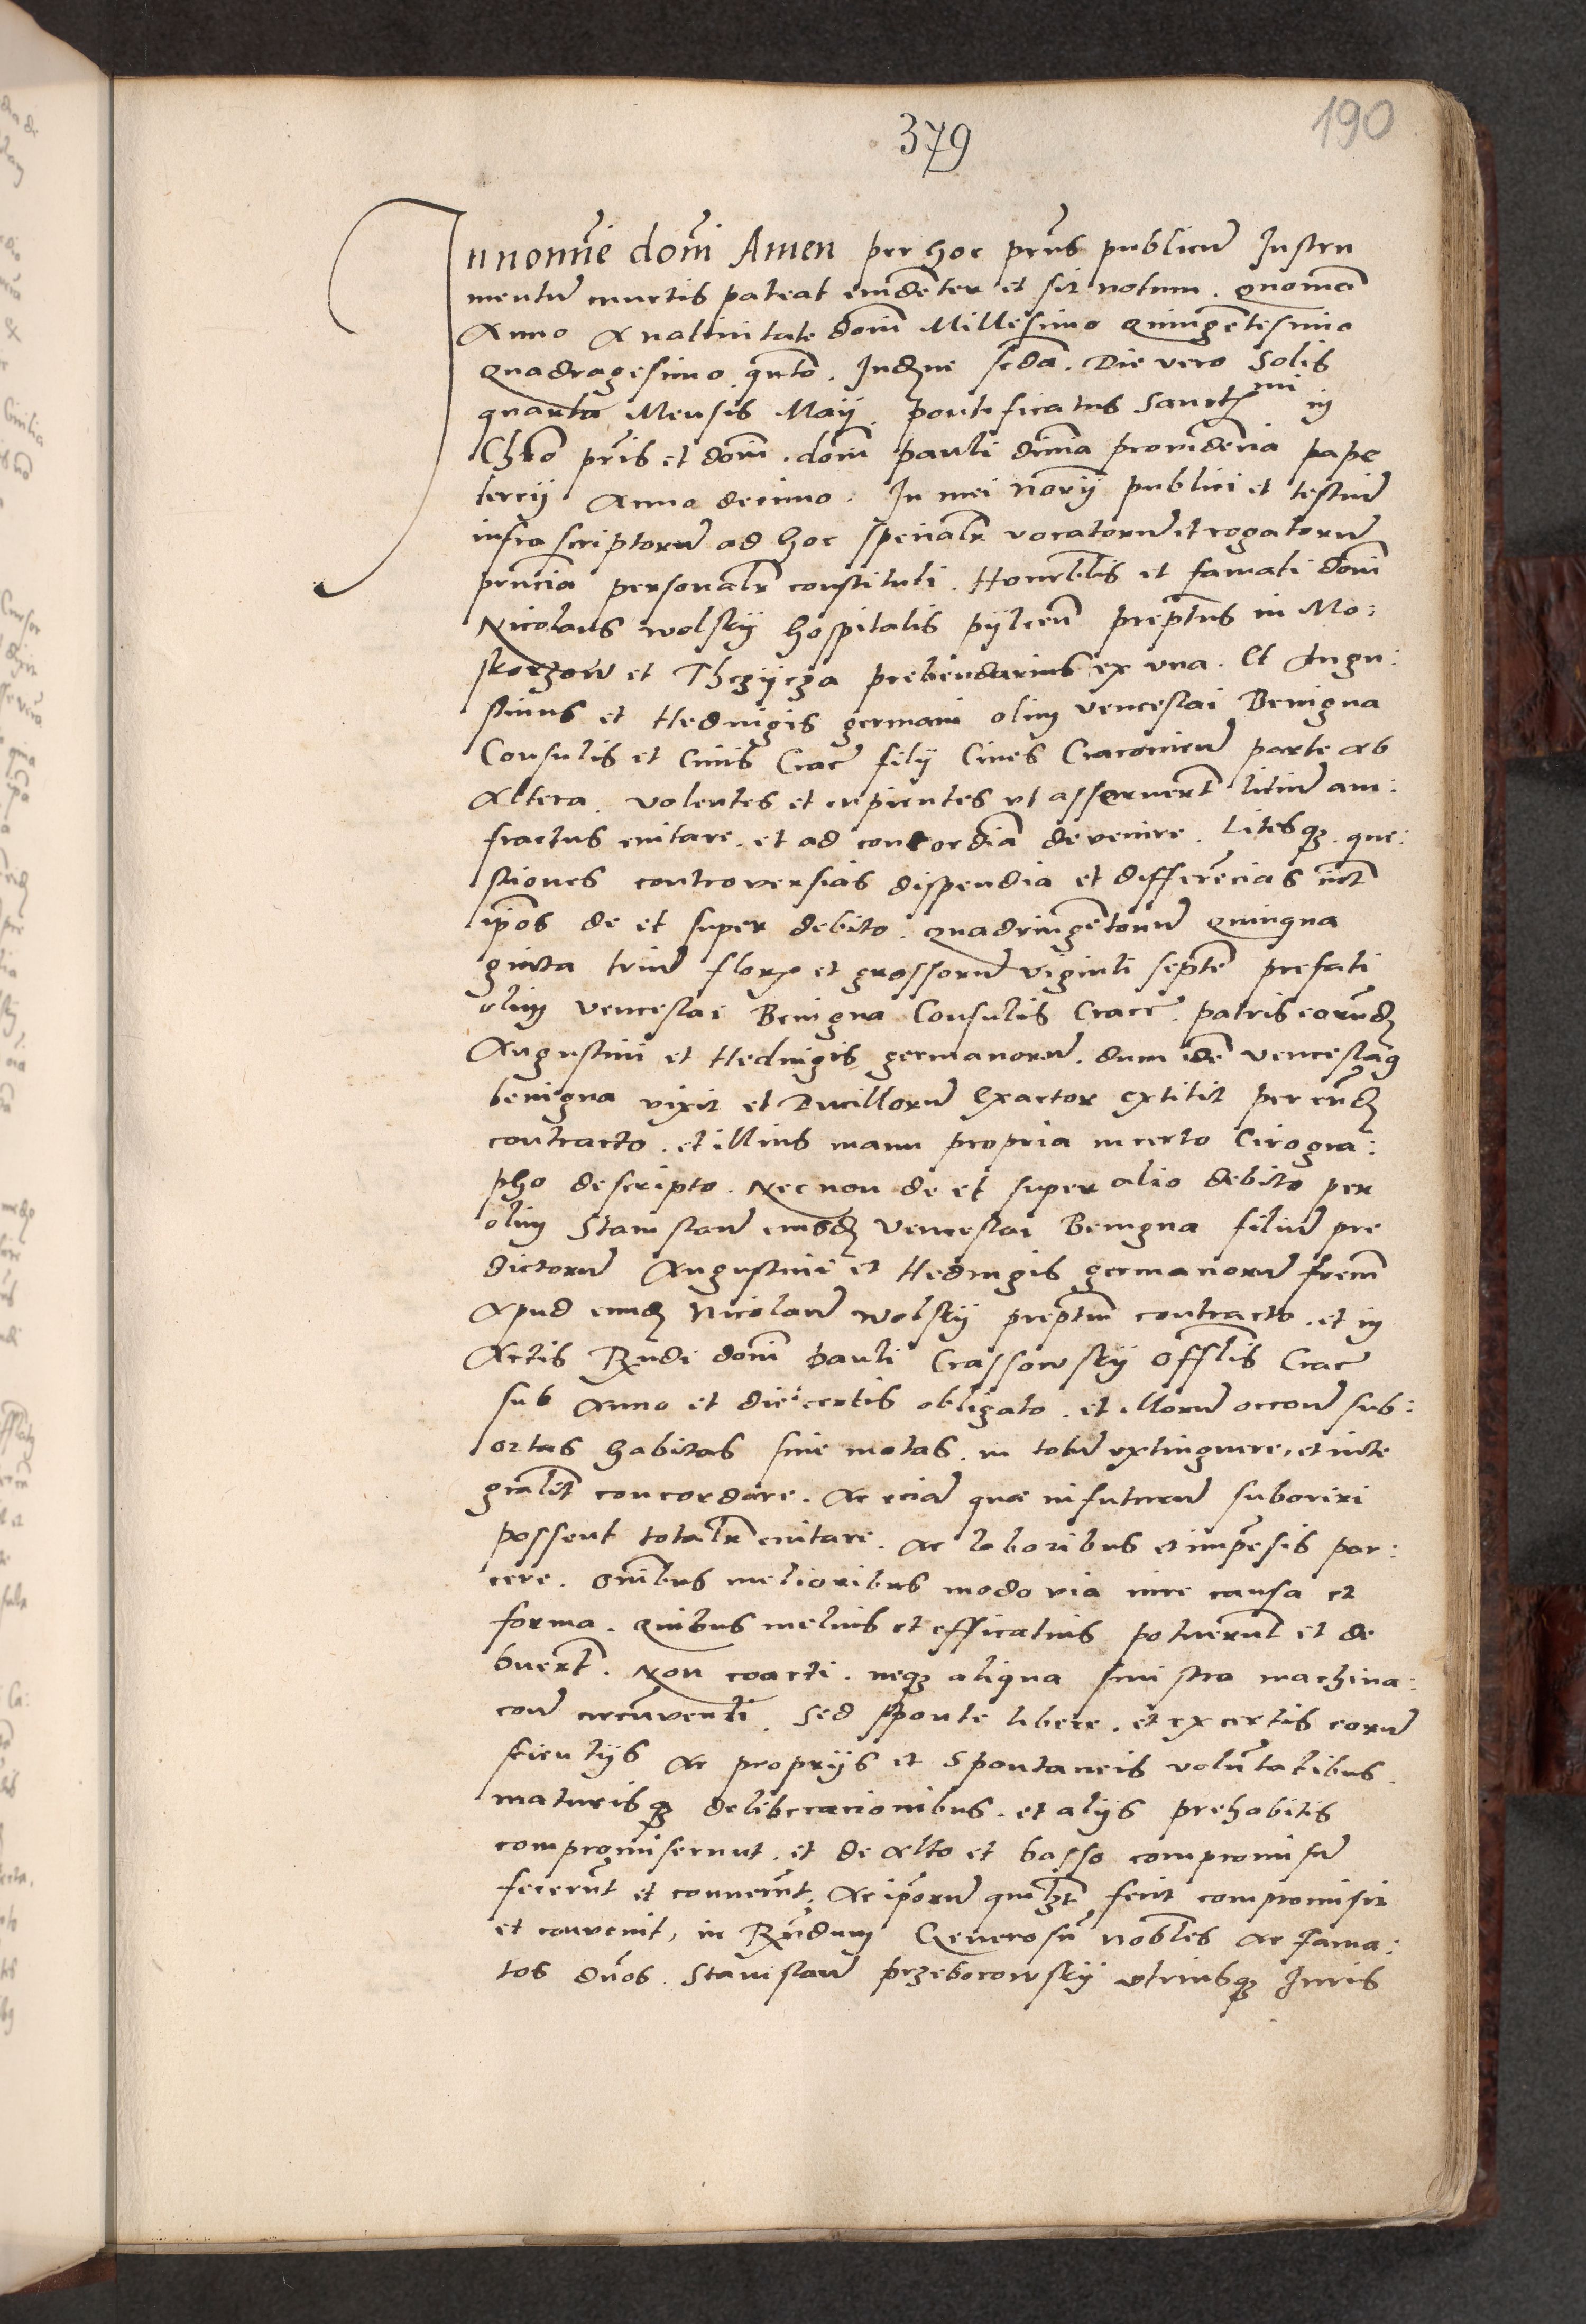 379
190
In nomīe domī Amen per hoc pn̄s publicū Instru
mentū cunctis pateat euidēter et sit notum. Quomō
Anno A natiuitate domī Millesimo Quingētesimo
Quadragesimo qūto. Indcne scđa. Die vero Solis
quarta Mensis Maij. pontificatus Sanctmi in
Chro pr̄is et domī. domī pauli diuīa prouidēcia pape
tercij Anno decimo. In mei norij publici et testiū
infra scriptorū ad hoc specialr vocatorū et rogatorū
pn̄cia personalr constituti. Honorbles et famati domī
Nicolaus wolskij hospitalis pijlcen̄ preptus in Mo:
skorzow et Thczijcza prebendarius ex vna. Et Augu:
stinus et Heduigis germani olim venceslai Benigna
Consulis et Ciuis Crac̄ filij Ciues Cracouien̄ parte ab
Altera. volentes et cupientes vt asseruert litiū am:
fractus euitare. et ad concordiā deuenire. Litesq3 que:
stiones controuersias dispendia et differēcias int
ip̄os de et super debito. quadringētorū Quinqua
ginta triū flor. et grossorū viginti septē prefati
olim venceslai Benigna Consulis Cracē. patris eorūđ
Augustini et Heduigis germanorū. dum idē venceslaus
benigna vixit et Ducillorū Exactor extitit per eūđ
contracto. et illius manu propria in certo Cirogra:
pho descripto. Nec non de et super alio debito per
olim Stanislaū eiusđ venceslai Benigna filiū pre
dictorū Augustini et Heduigis germanorū frem̄
Apud eunđ Nicolaū wolskij preptum contracto. et in
Actis Rndi domī pauli Crassowskij Offlis Crac̄
sub Anno et die certis obligato. et illorū occone sub:
ortas habitas siue motas. in totū extinguere, et inte
gralit concordare. Ac eciā quæ in futurū suboriri
possent totalr euitare. Ac laboribus et impēsis par:
cere. Oībus melioribus modo via iure causa et
forma. Quibus melius et efficatius potuerūt et de
buert. Non coacti. neq3 aliqua sinistra machina:
cone circūuenti. Sed sponte libere. et ex certis eorū
scientijs ac proprijs et spontaneis volūtatibus.
maturisq3 deliberacionibus. et alijs prehabitis
compromiserunt. et de Alto et basso compromisū
fecerūt et conuenerūt. Ac ip̄orū quilzt fecit compromisit
et conuenit, in Rn̄dum Generosū nobles ac fama:
tos dn̄os. Stanislaū przeborowskij vtriusq3 Juris